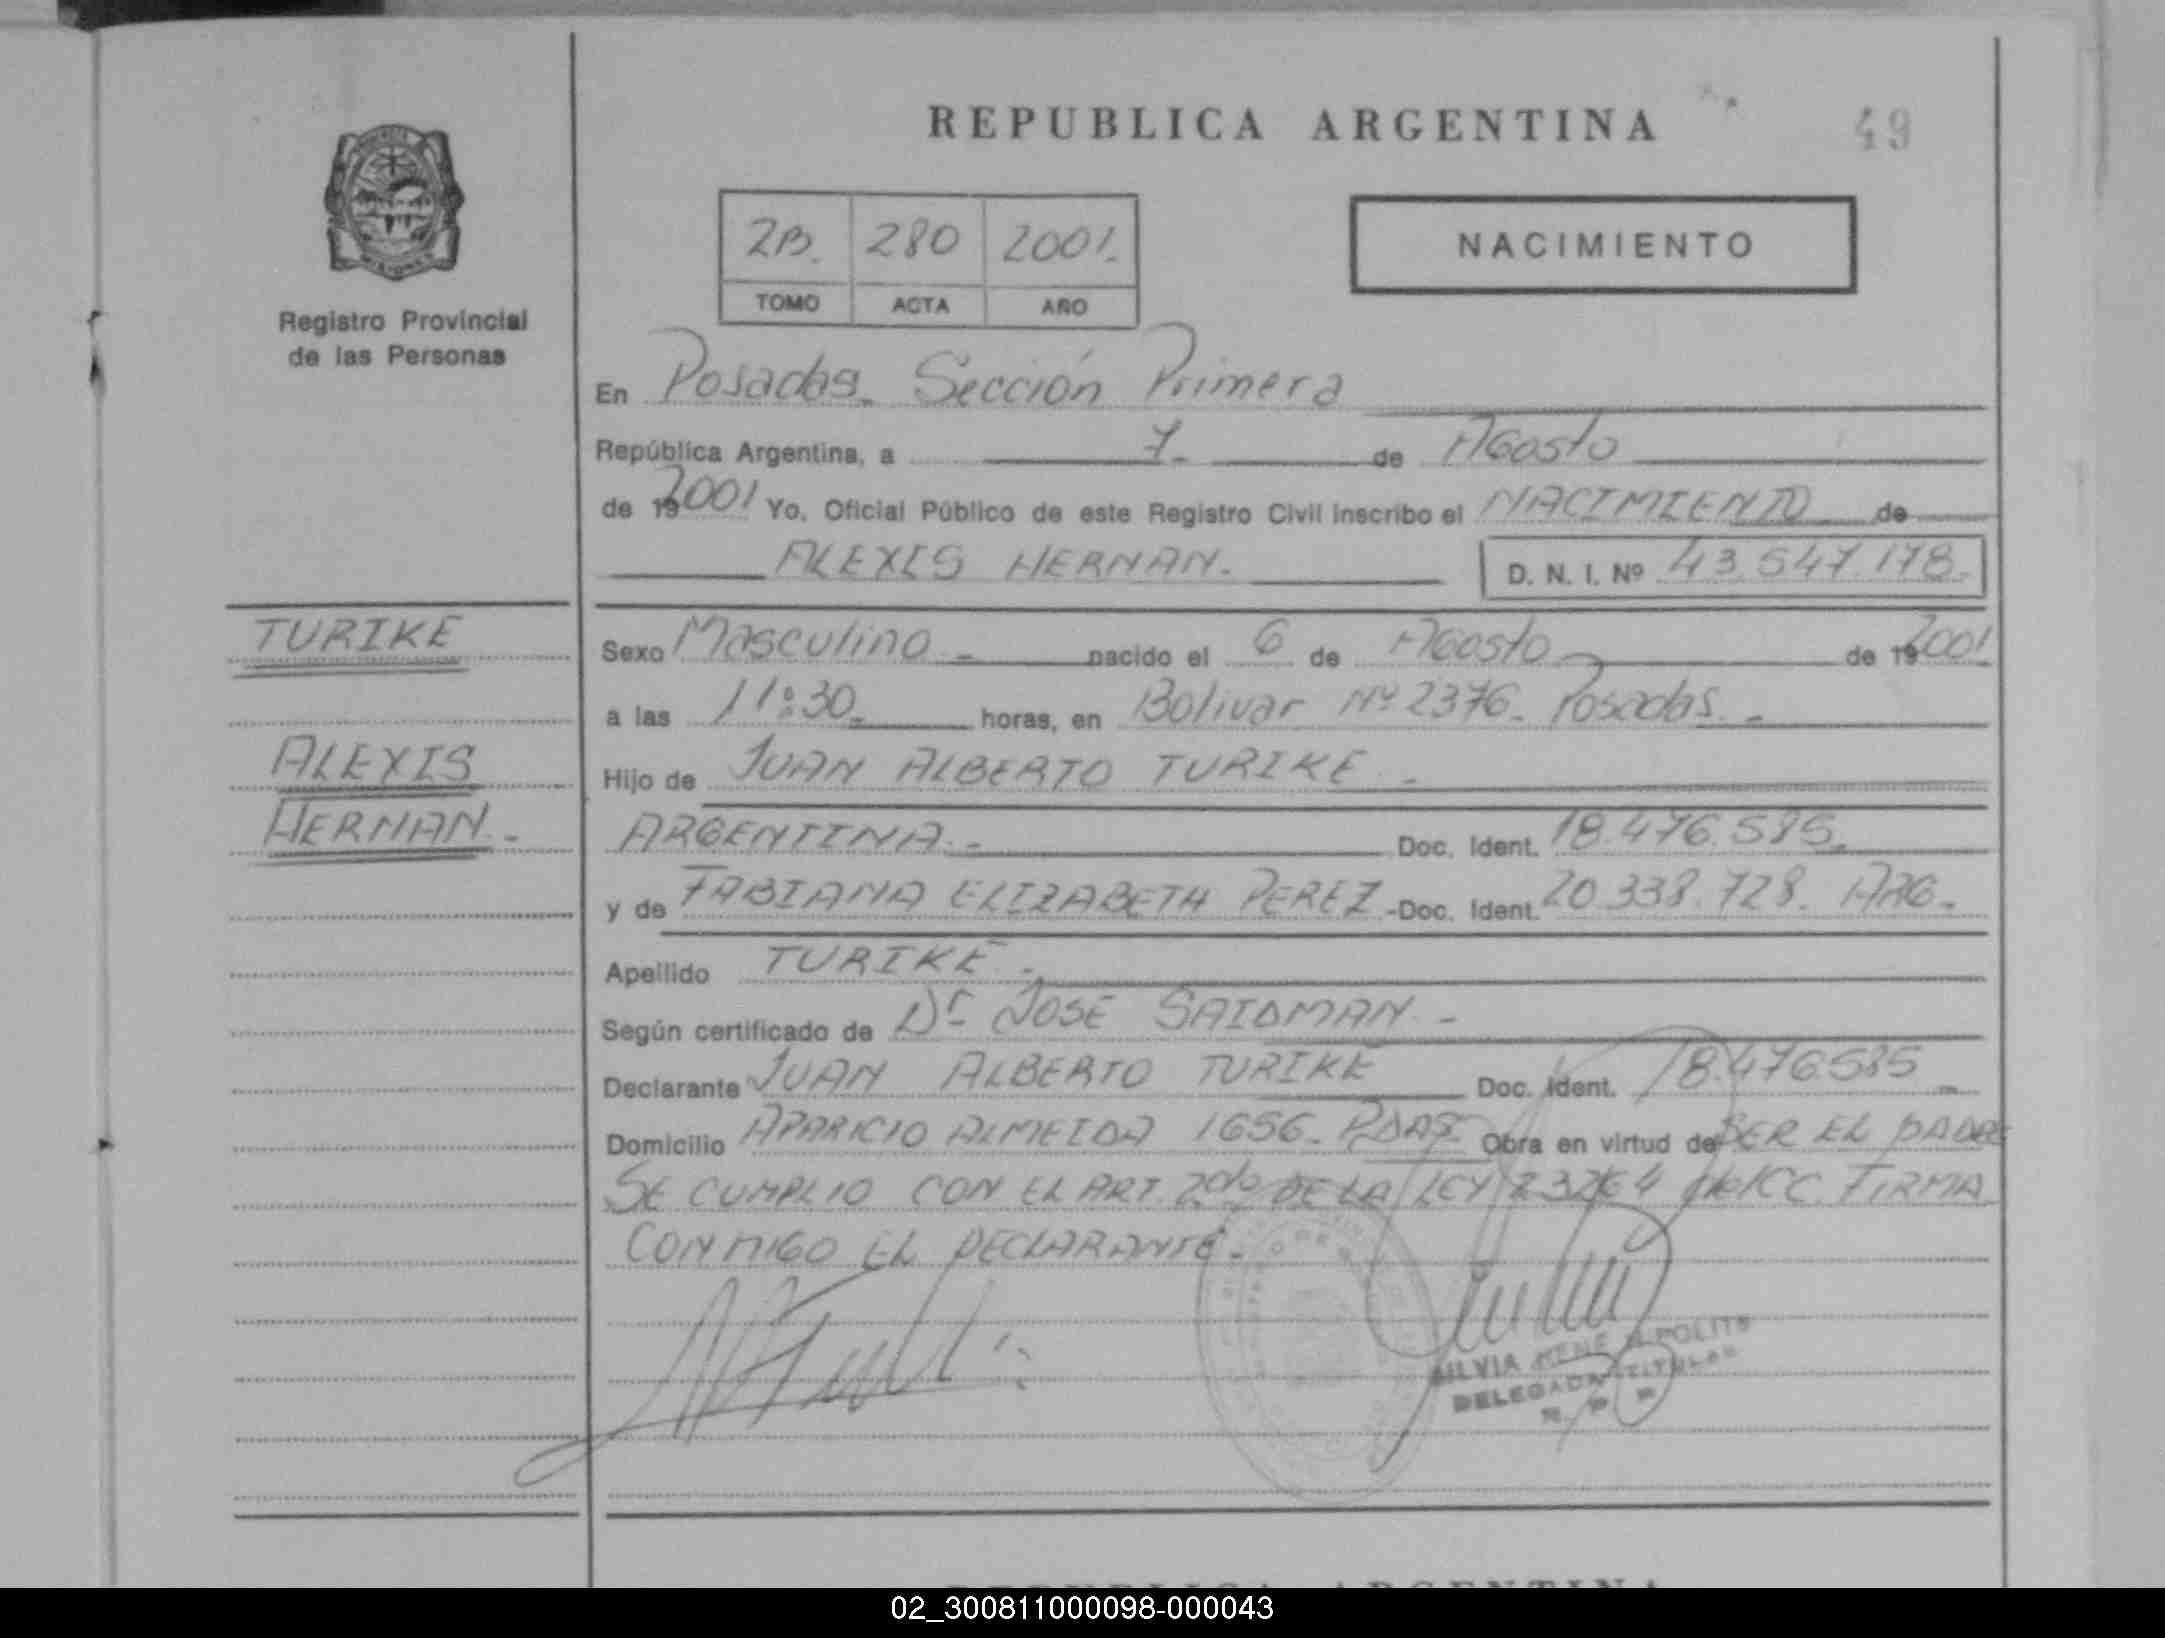 REPUBLICA ARGENTINA
49
Registro Provincial
de las Personas
2B. 280 2001.
TOMO ACTA AÑO
NACIMIENTO
En Posadas. Sección Primera
República Argentina, a 7- de Agosto
de 192001 Yo, Oficial Público de este Registro Civil inscribo el NACIMIENTO de
ALEXIS HERNAN.- D. N. I. Nº 43.547.178.-
TURIKE
ALEXIS
HERNAN.-
Sexo Masculino - nacido el 6 de Agosto de 192001
a las 11:30 horas, en Bolivar Nº 2376. Posadas.-
Hijo de JUAN ALBERTO TURIKE.-
ARGENTINA.- Doc. Ident. 18.476.585.
y de FABIANA ELIZABETH PEREZ -Doc. Ident. 20.338.728. ARG.-
Apellido TURIKE.-
Según certificado de Dr JOSE SAIDMAN.-
Declarante JUAN ALBERTO TURIKE Doc. Ident. 18.476585
Domicilio APARICIO ALMEIDA 1656. PDAS.- Obra en virtud de SER EL PADRE
SE CUMPLIO CON EL ART. 2do DE LA LEY 23264 del CC. FIRMA
CONMIGO EL DECLARANTE.-
SILVIA RENE
DELEGADA TITULAR
R. P. P.
02_300811000098-000043